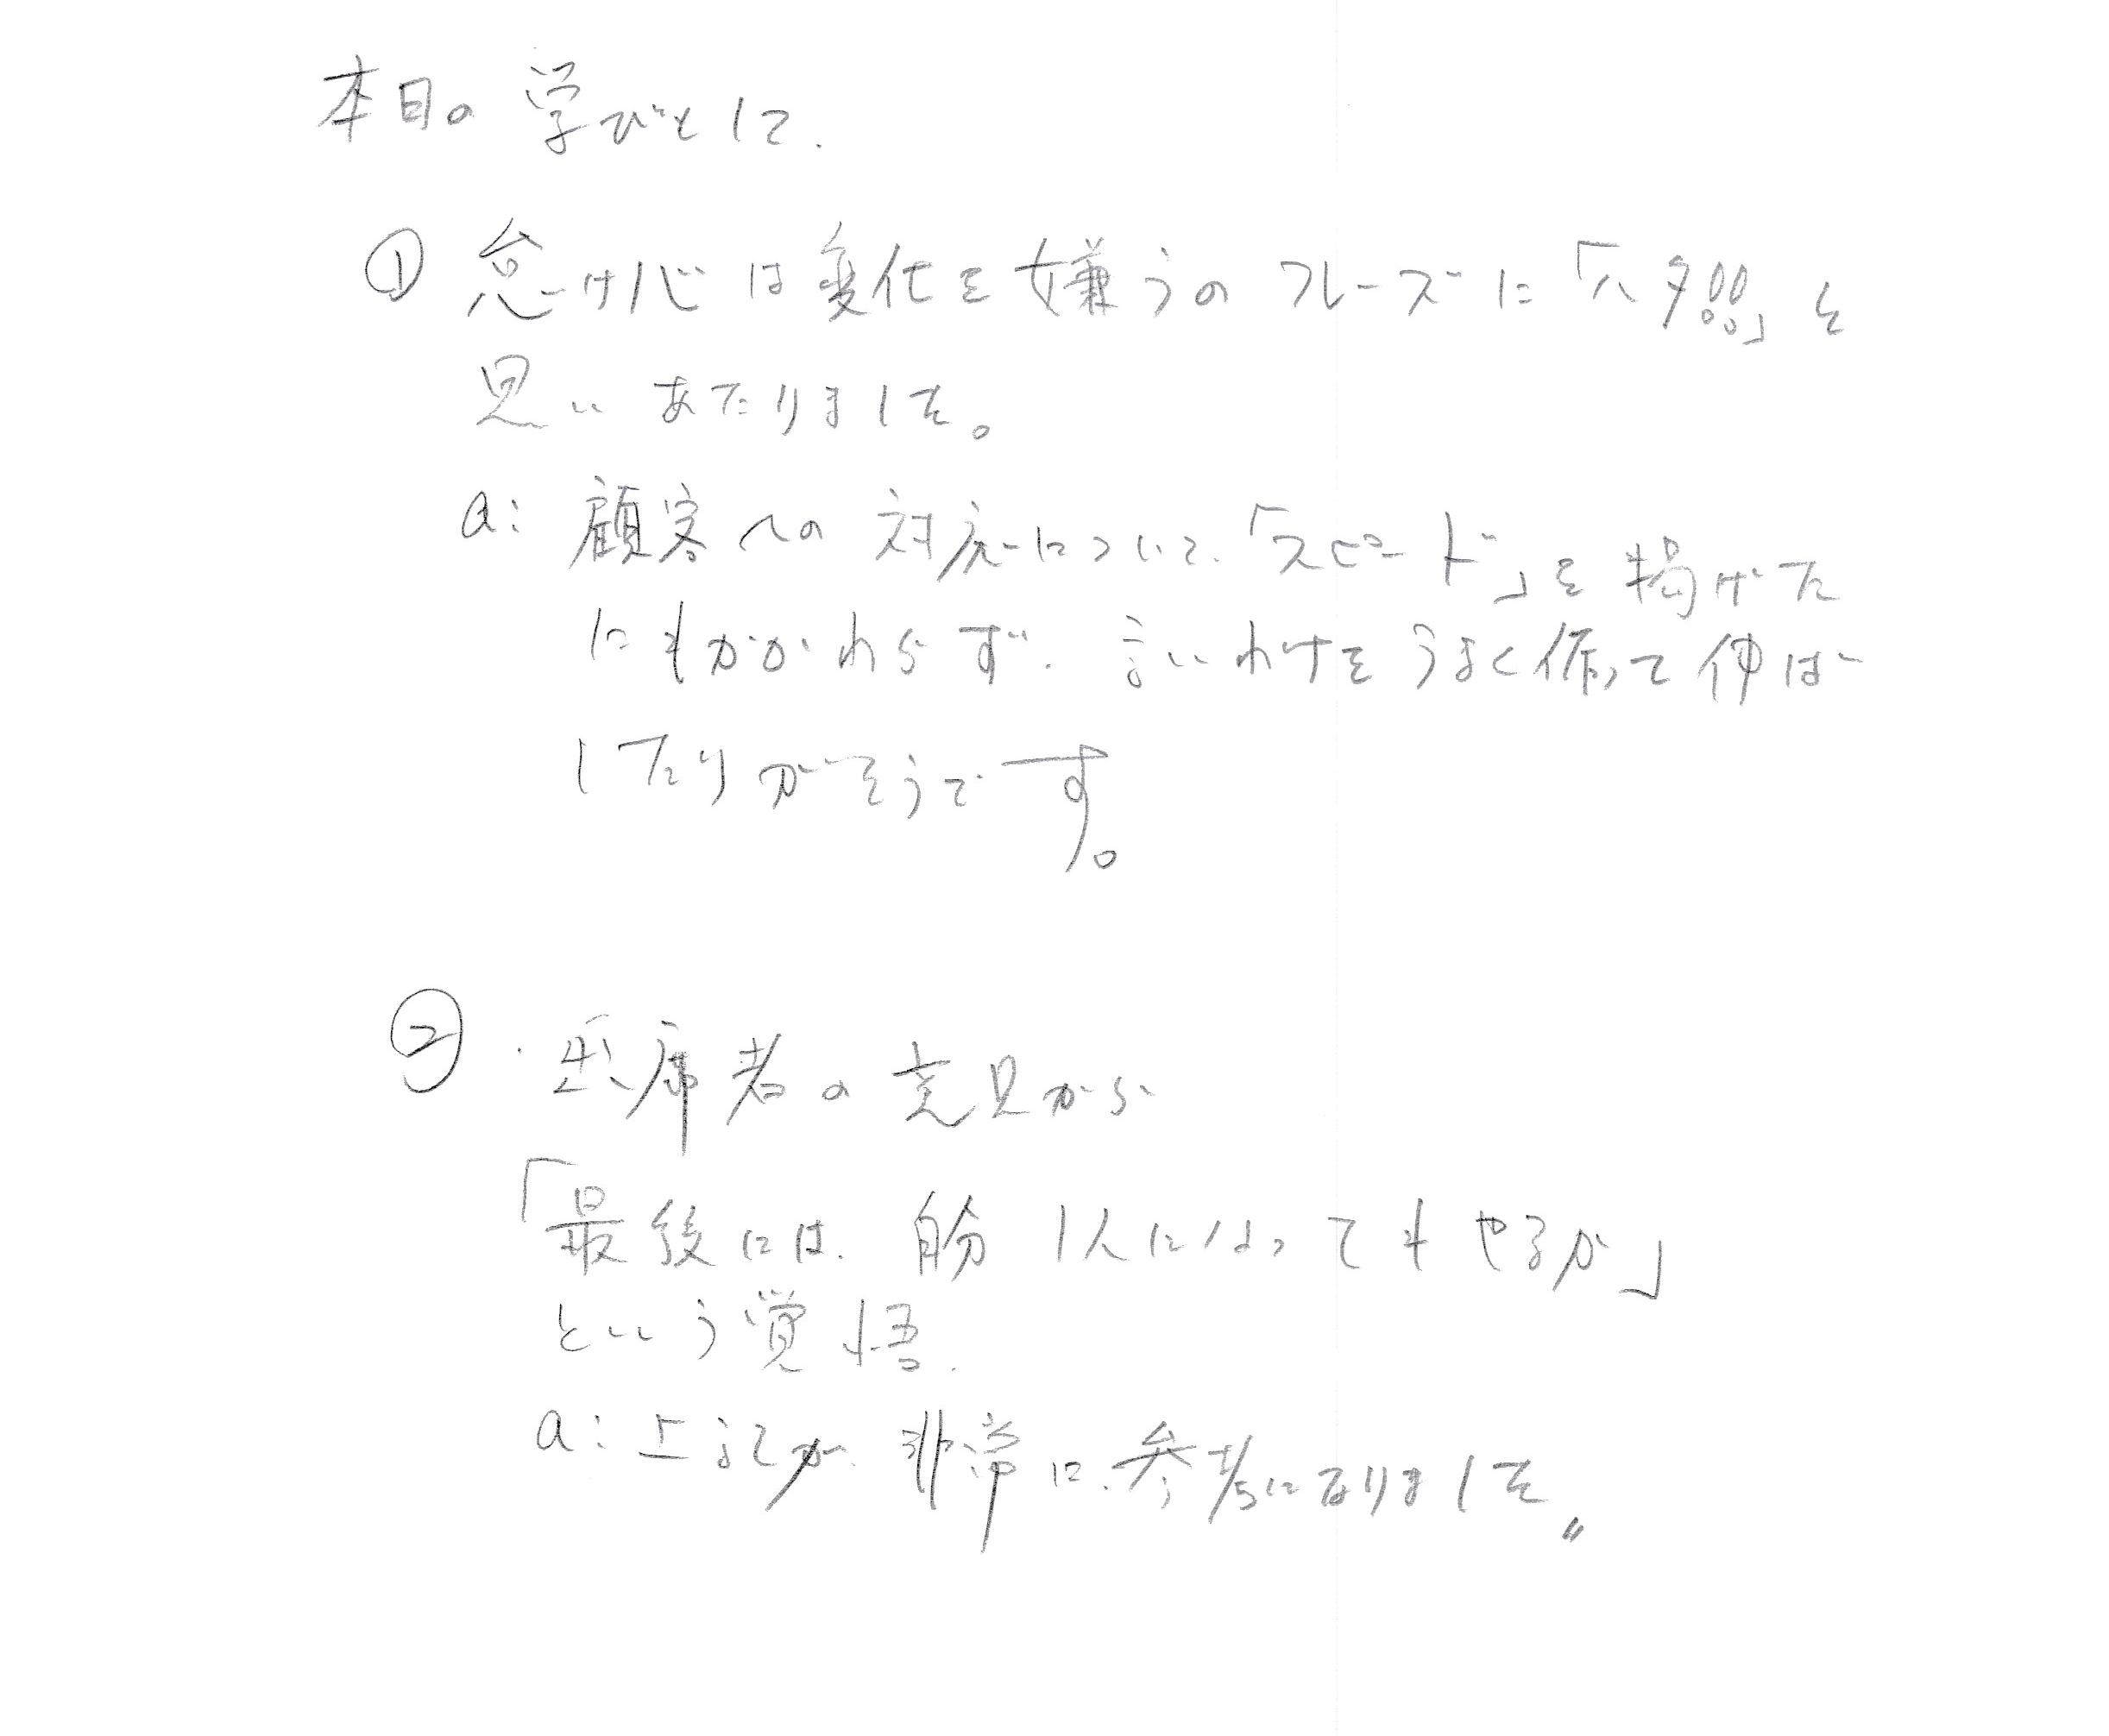 本日の学びとして、
① 怠け心は変化を嫌うのフレーズに「ハタ!!」と
思いあたりました。
a: 顧客への対応について、「スピード」を掲げた
にもかかわらず、言いわけをうまく作って伸ば
したりがそうです。
② ・出席者の意見から
「最後には、自分1人になってもやるか」
という覚悟、
a: 上記が、非常に、参考になりました。〃